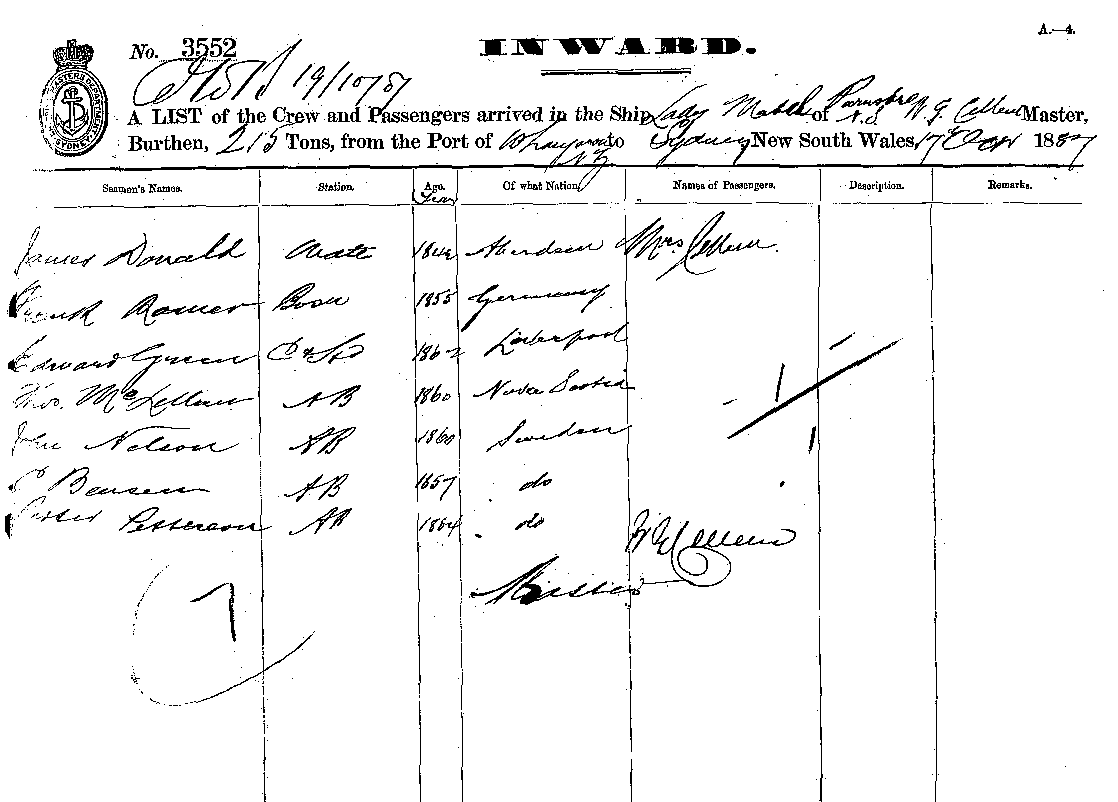 A.—4.
No. 3552
INWARD.
19/10/87
EASTERN DEPARTMENT SYDNEY
A LIST of the Crew and Passengers arrived in the Ship Lady Mabel of N.S. Master,
Burthen, 215 Tons, from the Port of N.Z. to Sydney New South Wales, 17 Oct 1887
Seamen's Names. Station. Age. Of what Nation. Names of Passengers. Description. Remarks.
Year
James Donald Mate 1842 Aberdeen Mrs
Frank Bosn 1855 Germany
Edward Green C & Std 1862 Liverpool
Thos. McLellan AB 1860 Nova Scotia
John Nelson AB 1860 Sweden
Bensen AB 1857 do
Petterson AB 1864 do
Master
7